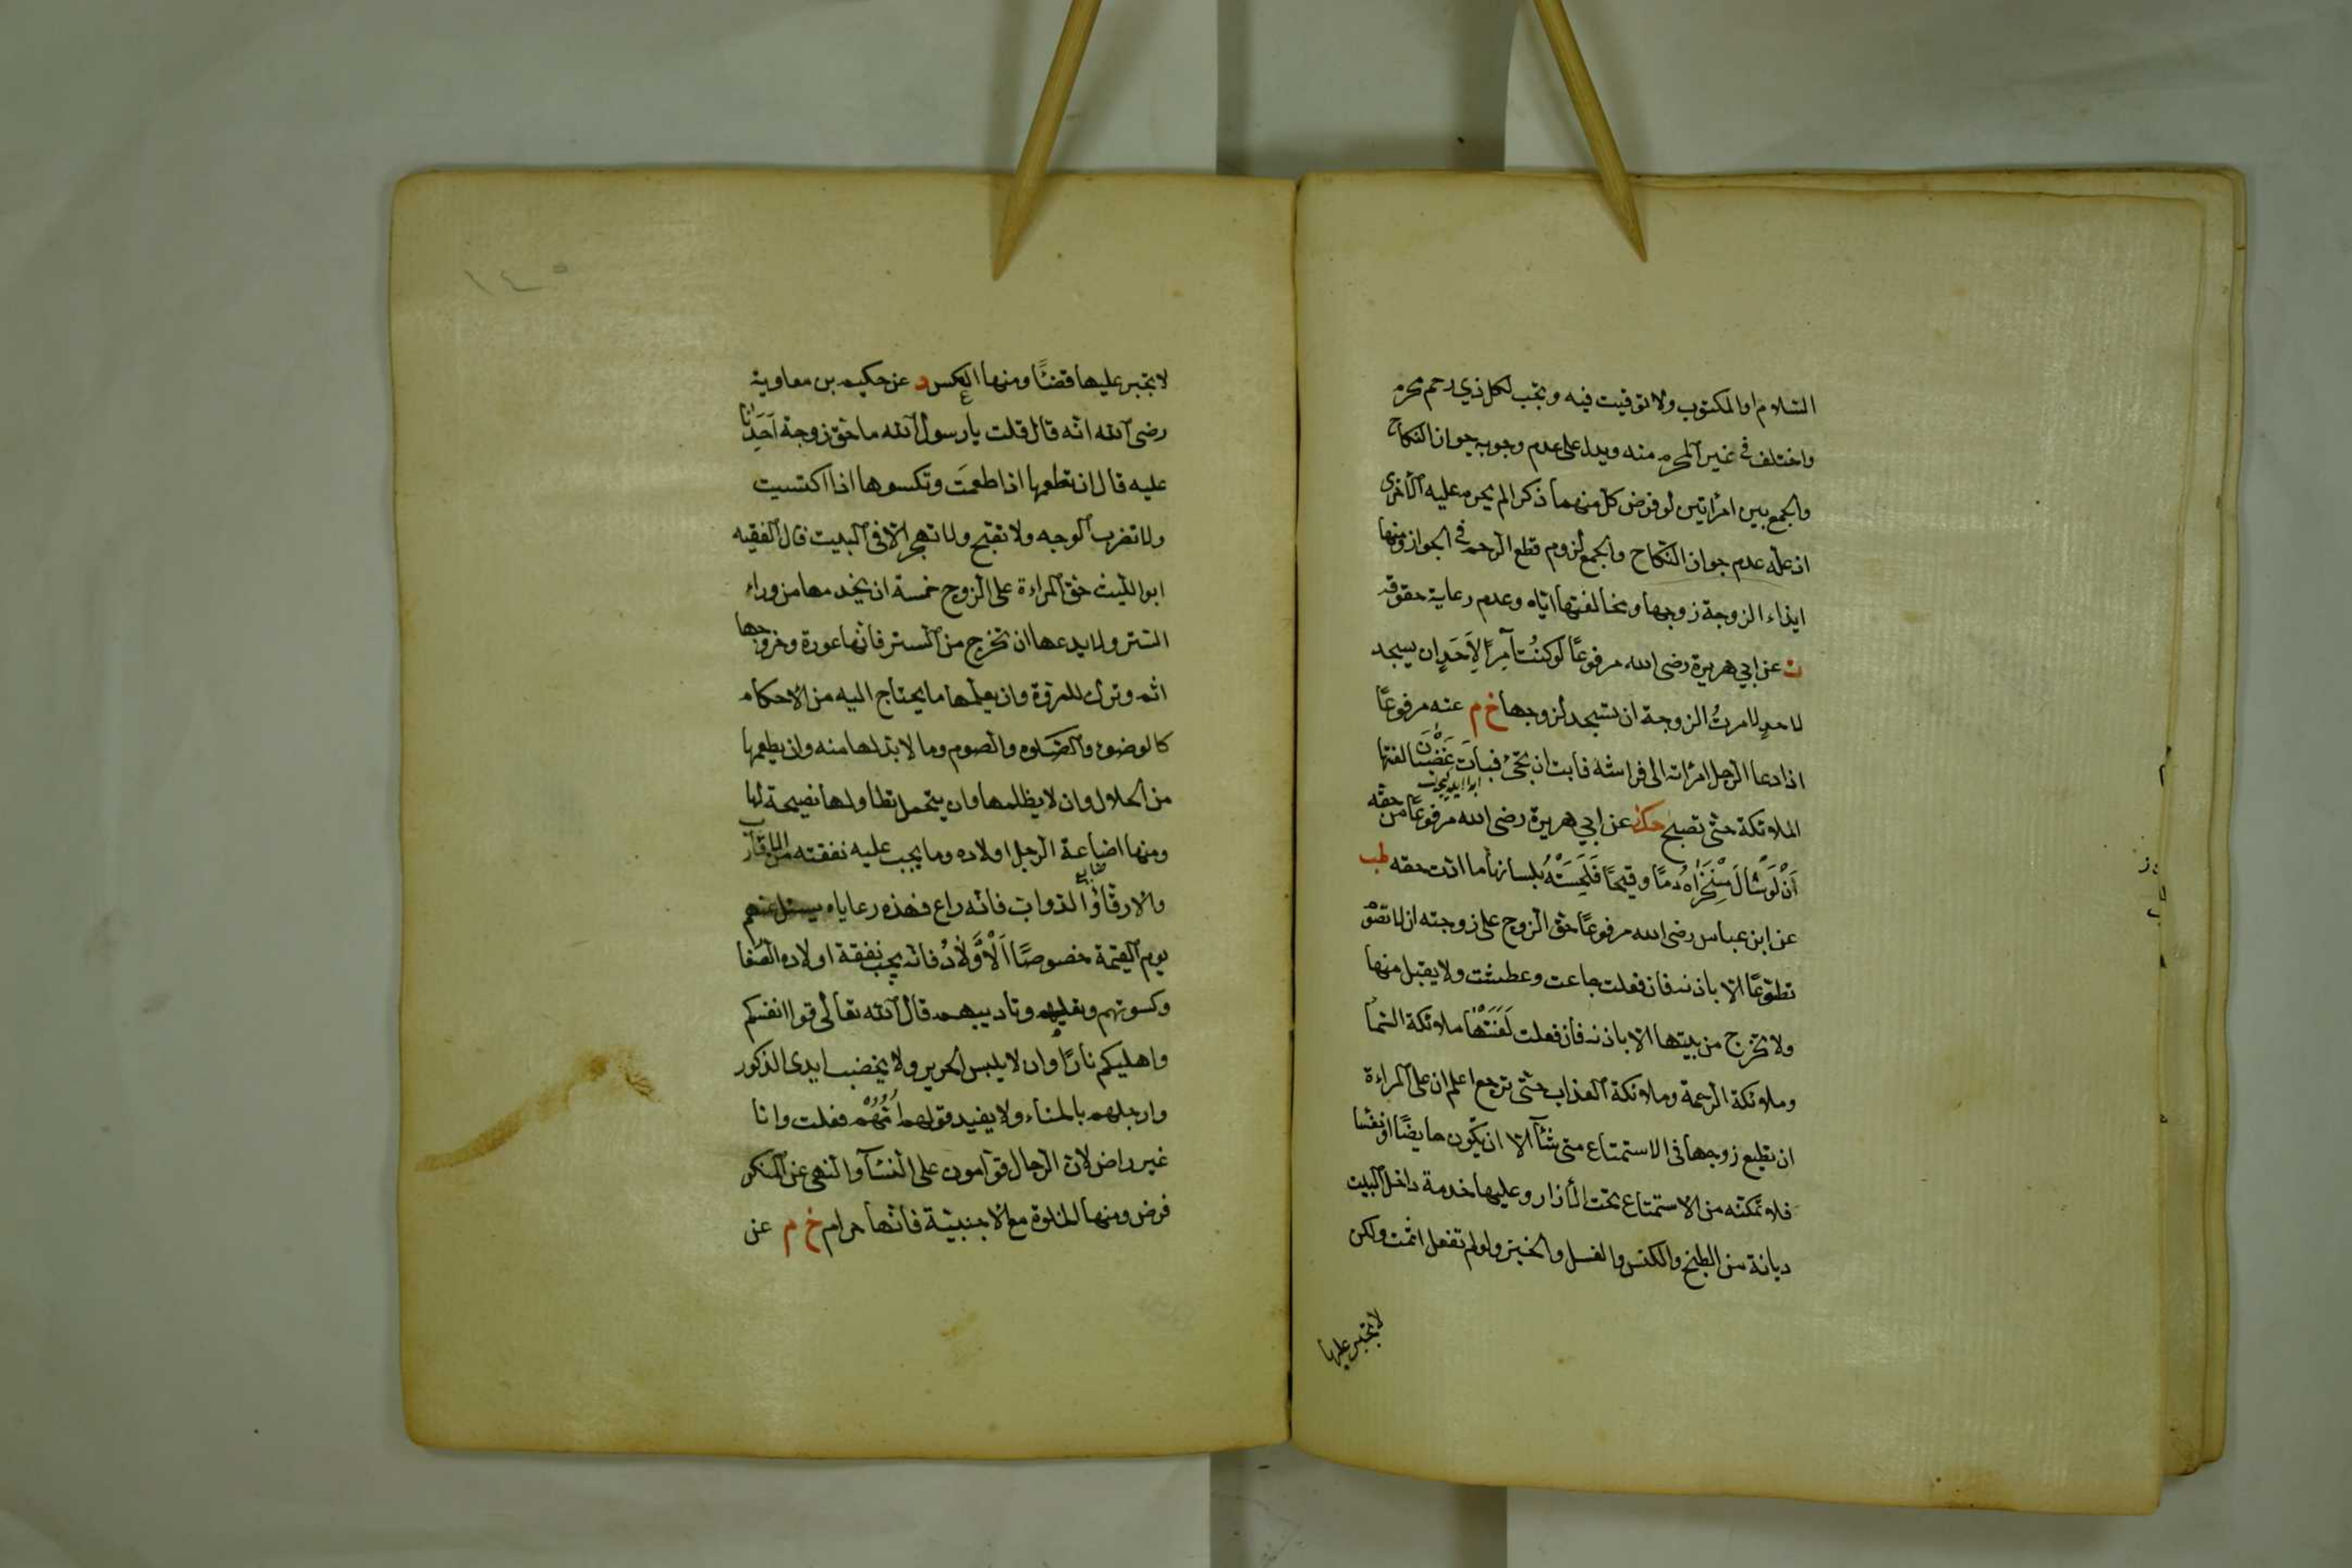 السلام او المكتوب ولا توقيت فيه ويجب لكل ذي رحم محرم
واختلف في غير المحرم منه ويدل على عدم وجوبه جواز النكاح
والجمع بين امرأتين لو فرض كل منهما ذكرا لم يحرم عليه الأخرى
اذ علة عدم جواز النكاح والجمع لزوم قطع الرحم في الجواز ومنها
ايذاء الزوجة زوجها ومخالفتها اياه وعدم رعاية حقوقه
ت عن ابي هريرة رضى الله مرفوعًا لَوكنتُ آمِرًا لِاَحَدٍ ان يسجد
لاحدٍ لامرتُ الزوجة ان تسجد لزوجها خ م عنه مرفوعًا
اذا دعا الرجل امرأته الى فراشه فابت ان تجئ فبات غضبان لعنتها
الملائكة حتى تصبح حك عن ابي هريرة رضى الله مرفوعًا من حقه
اَنْ لَوْ سَالَ مِنْخَرَاهُ دمًا وقيحًا فَلَحِسَتْهُ بلسانها ما ادّت حقه طب
عن ابن عباس رضى الله مرفوعًا حق الزوج على زوجته ان لا تصوم
تطوّعًا الا باذنه فان فعلت جاعت وعطشت ولا يقبل منها
ولا تخرج من بيتها الا باذنه فان فعلت لَعَنَتْهَا ملائكة السماء
وملائكة الرحمة وملائكة العذاب حتى ترجع اعلم ان على المراءة
ان تطيع زوجها في الاستمتاع متى شآء الا ان يكون حايضًا او نفسا
فلا تمكنه من الاستمتاع تحت الأزار وعليها خدمة داخل البيت
ديانة من الطبخ والكنس والغسل والخبز ولو لم تفعل اثمت ولكن
لا تجبر عليها
١٤٥
لا تجبر عليها قضئًا ومنها العكس د عن حكيم بن معاوية
رضى الله انّه قال قلت يا رسول الله ما حق زوجة اَحَدِنَا
عليه قال ان تطعمها اذا طعمتَ وتكسوها اذا اكتسيت
ولا تضرب الوجه ولا تقبّح ولا تهجر الا في البيت قال الفقيه
ابو الليث حق المراءة على الزوج خمسة ان يخدمها من وراء
الستر ولا يدعها ان تخرج من الستر فانّها عورة وخروجها
اثم وترك للمروّة وان يعلّمها ما يحتاج اليه من الاحكام
كالوضوء والصلوة والصوم وما لا بدّ لها منه وان يطعمها
من الحلال وان لا يظلمها وان يتحمل تطاولها نصيحة لها
ومنها اضاعة الرجل اولاده وما يجب عليه نفقته من الاقارب
والارقاؤ الدواب فانّه راع فهذه رعاياه يسئل عنهم
يوم القيمة خصوصًا اَلْاَوْلَادُ فانه يجب نفقة اولاده الصغا
وكسوتهم وتعليمهم وتاديبهم قال الله تعالى قوا انفسكم
واهليكم نارًا وان لا يلبس الحرير ولا يخضب ايدى الذكور
وارجلهم بالحناء ولا يفيد قولهم اُمّهُمْ فعلت وانا
غير راض لانّ الرجال قوّامون على النسآء والنهى عن المنكر
فرض ومنها الخلوة مع الاجنبيّة فانّها حرام خ م عن